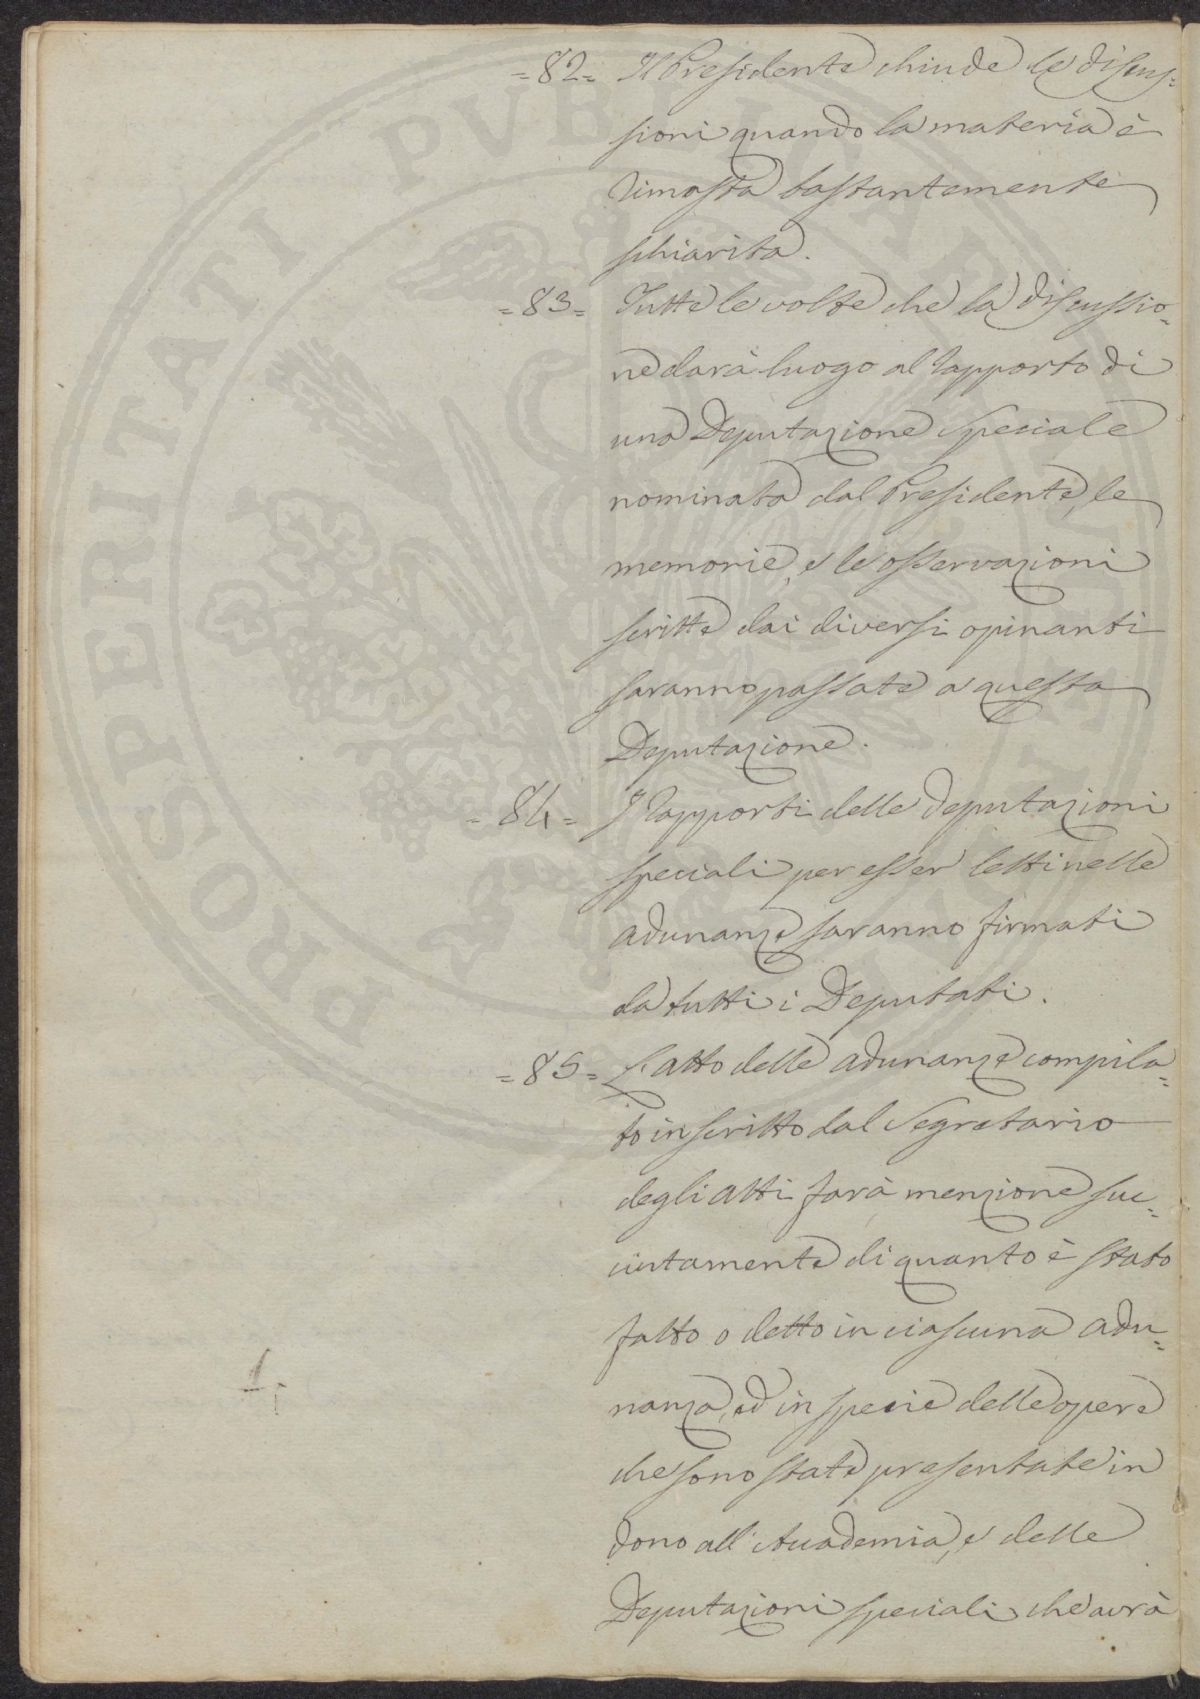 =82= Il Presidente chiude le discus=
sioni quando la materia è
rimasta bastantemente
schiarita.
=83= Tutte le volte che la discussio=
ne darà luogo al rapporto di
una Deputazione speciale
nominata dal Presidente, le
memorie, e le osservazioni
scritte dai diversi opinanti
saranno passate a questa
Deputazione.
=84= I rapporti delle deputazioni
speciali per esser letti nelle
adunanze saranno firmati
da tutti i Deputati.
=85= L'atto delle adunanze compila=
to in scritto dal Segretario
degli atti farà menzione suc=
cintamente di quanto è stato
fatto o detto in ciascuna adu=
nanza, ed in specie delle opere
che sono state presentate in
dono all'Accademia, e delle
Deputazioni speciali che avrà
PROSPERITATI PVBLICAE